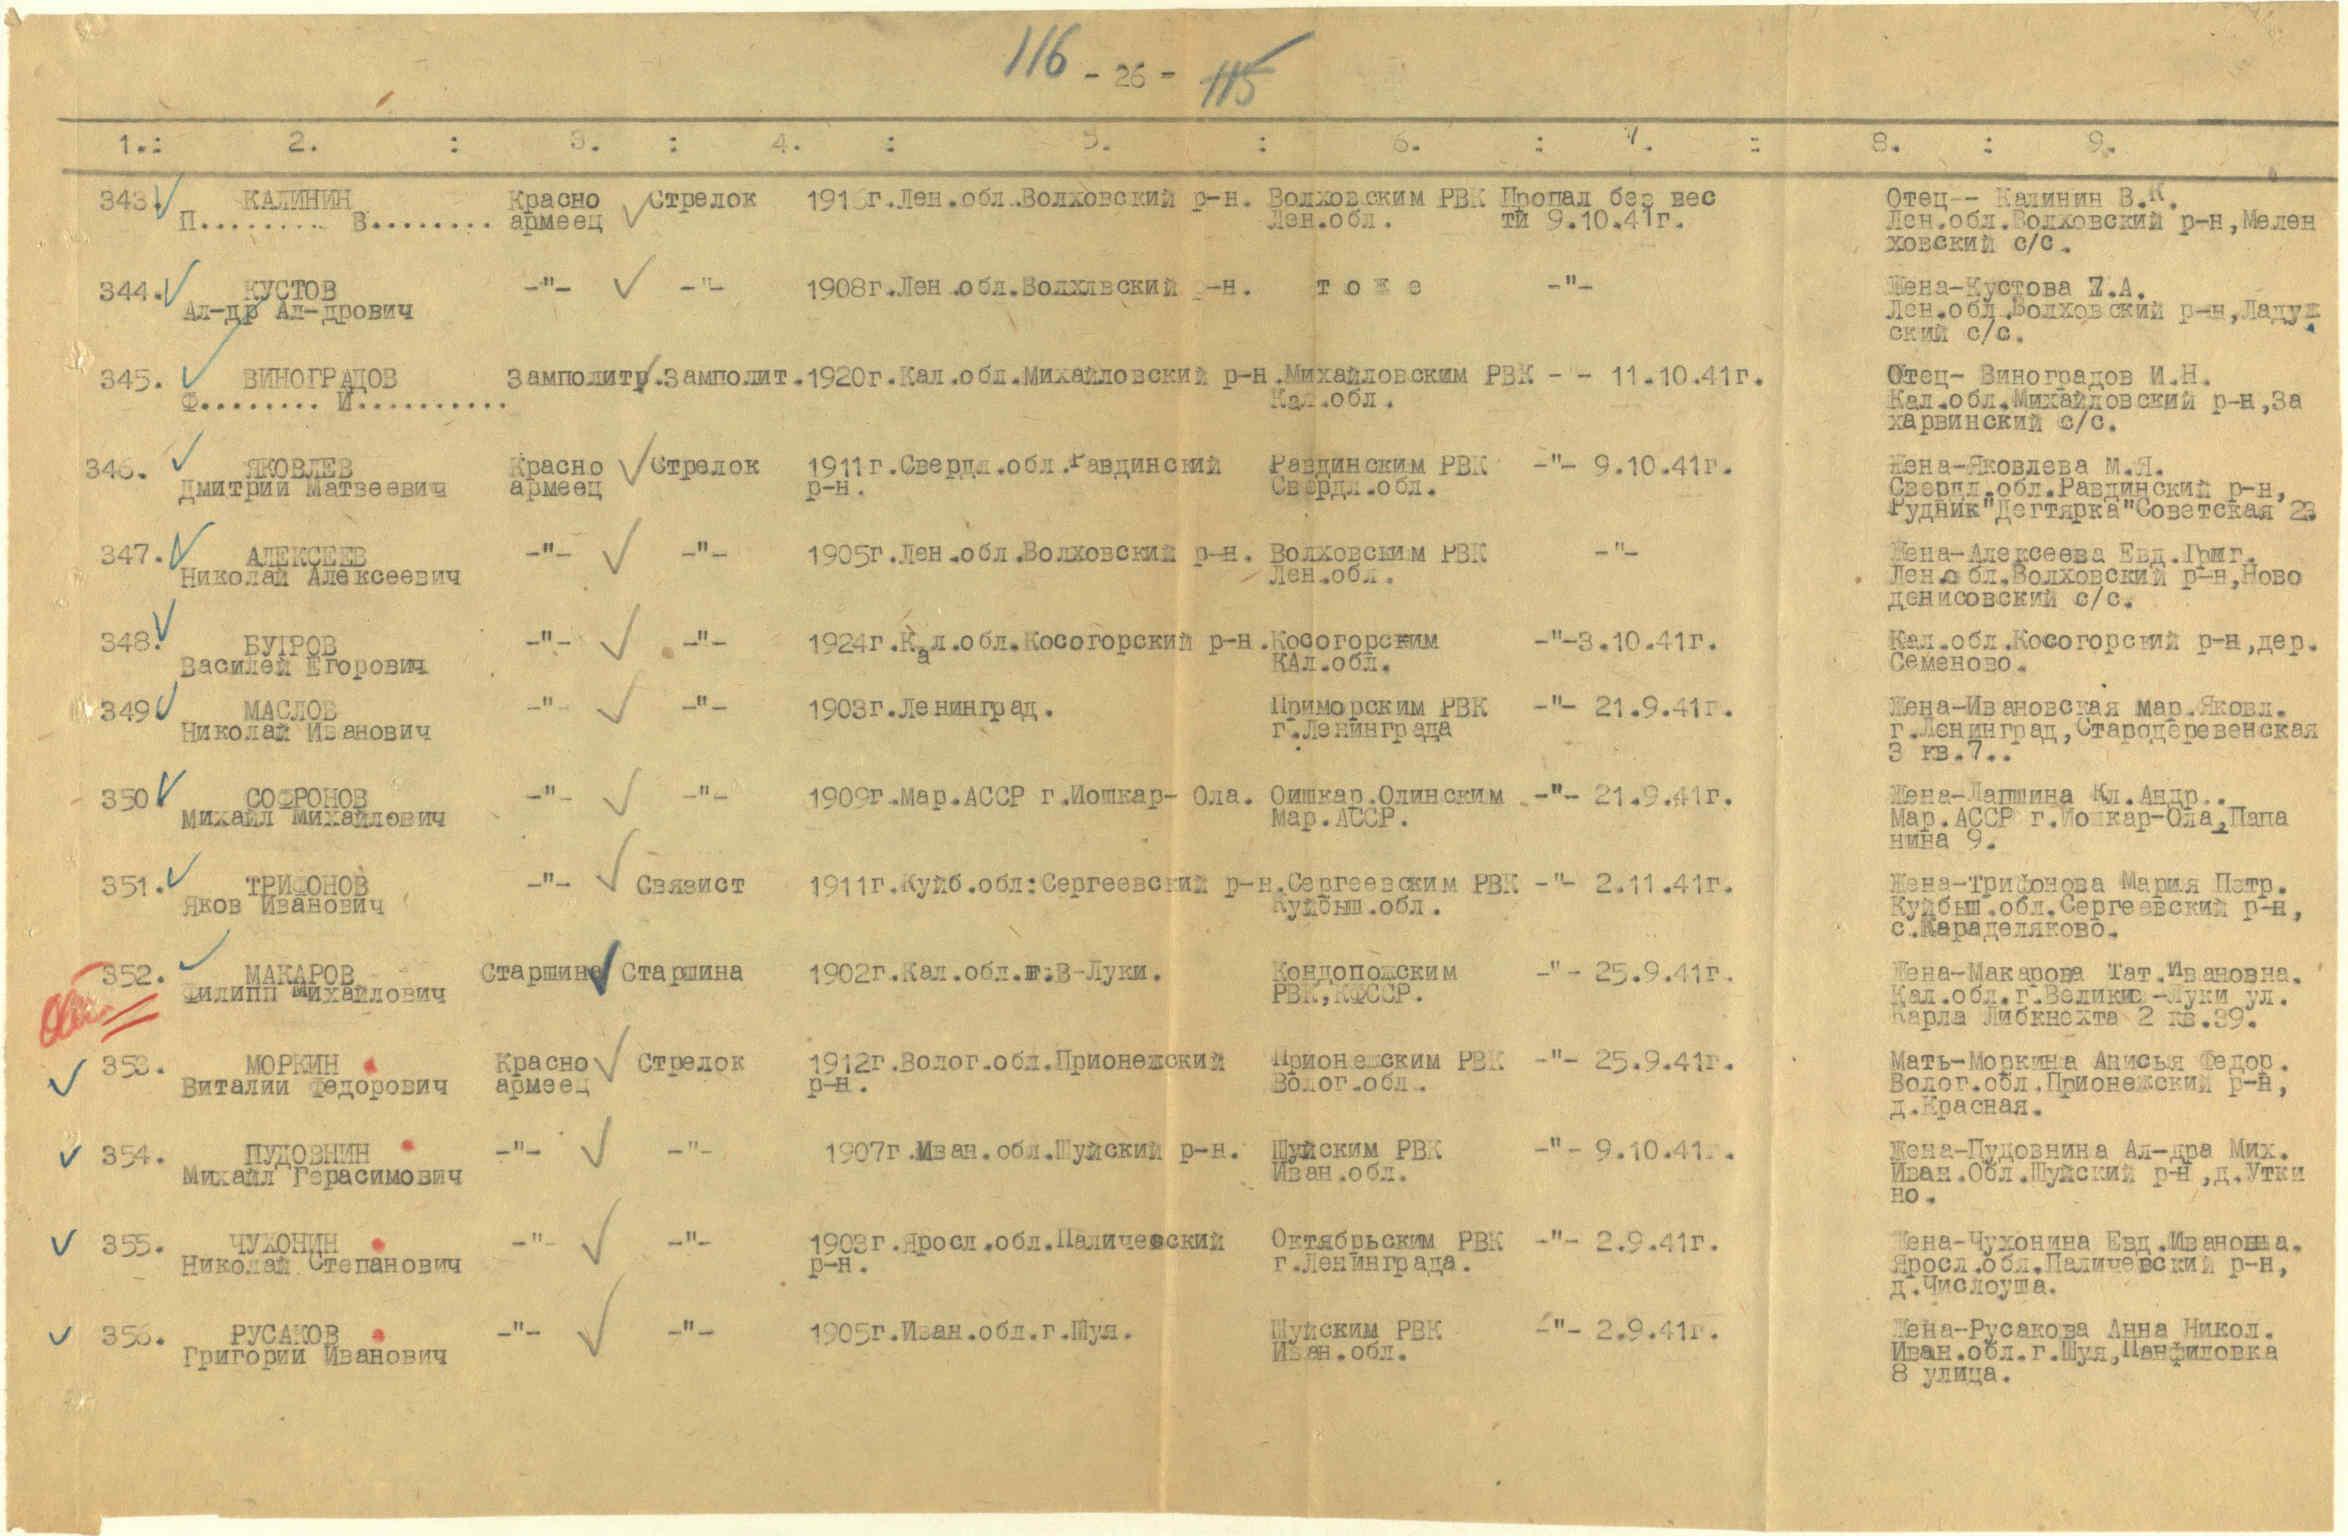 116 - 26 - 115
1.: 2. : 3. : 4. : 5. : 6. : 7. : 8. : 9.
343. КАЛИНИН Красно Стрелок Лен.обл.Волховский р-н. Волховским РВК Пропал без вес Отец-- Калинин В.К.
П......... В........ армеец Лен.обл. ти 9.10.41г. Лен.обл.Волховский р-н,Мелен
ховский с/с.
344. КУСТОВ -"- -"- 1908г.Лен.обл.Волхлвский р-н. т о ж е -"- Жена-Кустова А.
Ал-др Ал-дрович Лен.обл.Волховский р-н,Ладуж
ский с/с.
345. ВИНОГРАДОВ Замполитр.Замполит.1920г.Кал.обл.Михайловский р-н.Михайловским РВК -"- 11.10.41г. Отец- Виноградов И.Н.
Ф........ И.......... Кал.обл. Кал.обл.Михайловский р-н,За
харвинский с/с.
346. ЯКОВЛЕВ Красно Стрелок 1911г.Свердл.обл.Равдинский Равдинским РВК -"- 9.10.41г. Жена-Яковлева М.Я.
Дмитрий Матвеевич армеец р-н. Свердл.обл. Свердл.обл.Равдинский р-н,
Рудник"Дегтярка"Советская 23
347. АЛЕКСЕЕВ -"- -"- 1905г.Лен.обл.Волховский р-н. Волховским РВК -"- Жена-Алексеева Евд.Григ.
Николай Алексеевич Лен.обл. Лен.обл.Волховский р-н,Ново
денисовский с/с.
348. БУТРОВ -"- -"- 1924г.Кал.обл.Косогорский р-н.Косогорским -"-3.10.41г. Кал.обл.Косогорский р-н,дер.
Василей Егорович КАл.обл. Семеново.
349 МАСЛОВ -"- -"- 1903г.Ленинград. Приморским РВК -"- 21.9.41г. Жена-Ивановская мар.Яковл.
Николай Иванович г.Ленинграда г.Ленинград,Стародеревенская
3 кв.7..
350 СОФРОНОВ -"- -"- 1909г.Мар.АССР г.Иошкар- Ола. Оишкар.Олинским -"- 21.9.41г. Жена-Лапшина Кл.Андр..
Михайл Михайлович Мар.АССР. Мар.АССР г.Иошкар-Ола,Папа
нина 9.
351. ТРИФОНОВ -"- Связист 1911г.Куйб.обл:Сергеевский р-н.Сергеевским РВК -"- 2.11.41г. Жена-трифонова Мария Петр.
Яков Иванович Куйбыш.обл. Куйбыш.обл.Сергеевский р-н,
с.Караделяково.
352. МАКАРОВ Старшина Старшина 1902г.Кал.обл.г.В-Луки. Кондопожским -"- 25.9.41г. Жена-Макарова Тат.Ивановна.
Филипп Михайлович РВК,КФССР. Кал.обл.г.Велики-Луки ул.
Карла Либкнехта 2 кв.39.
353. МОРКИН Красно Стрелок 1912г.Волог.обл.Прионежский Прионежским РВК -"- 25.9.41г. Мать-Моркина Анисья Федор.
Виталии Федорович армеец р-н. Волог.обл. Волог.обл.Прионежский р-н,
д.Красная.
354. ПУДОВНИН -"- -"- 1907г.Иван.обл.Шуйский р-н. Шуйским РВК -"- 9.10.41г. Жена-Пудовнина Ал-дра Мих.
Михайл Герасимович Иван.обл. Иван.Обл.Шуйский р-н,д.Утки
но.
355. ЧУХОНИН -"- -"- 1903г.Яросл.обл.Паличевский Октябрьским РВК -"- 2.9.41г. Жена-Чухонина Евд.Ивановна.
Николай Степанович р-н. г.Ленинграда. Яросл.обл.Паличевский р-н,
д.Числоуша.
356. РУСАКОВ -"- -"- 1905г.Иван.обл.г.Шуя. Шуйским РВК -"- 2.9.41г. Жена-Русакова Анна Никол.
Григории Иванович Иван.обл. Иван.обл.г.Шуя,Панфиловка
8 улица.